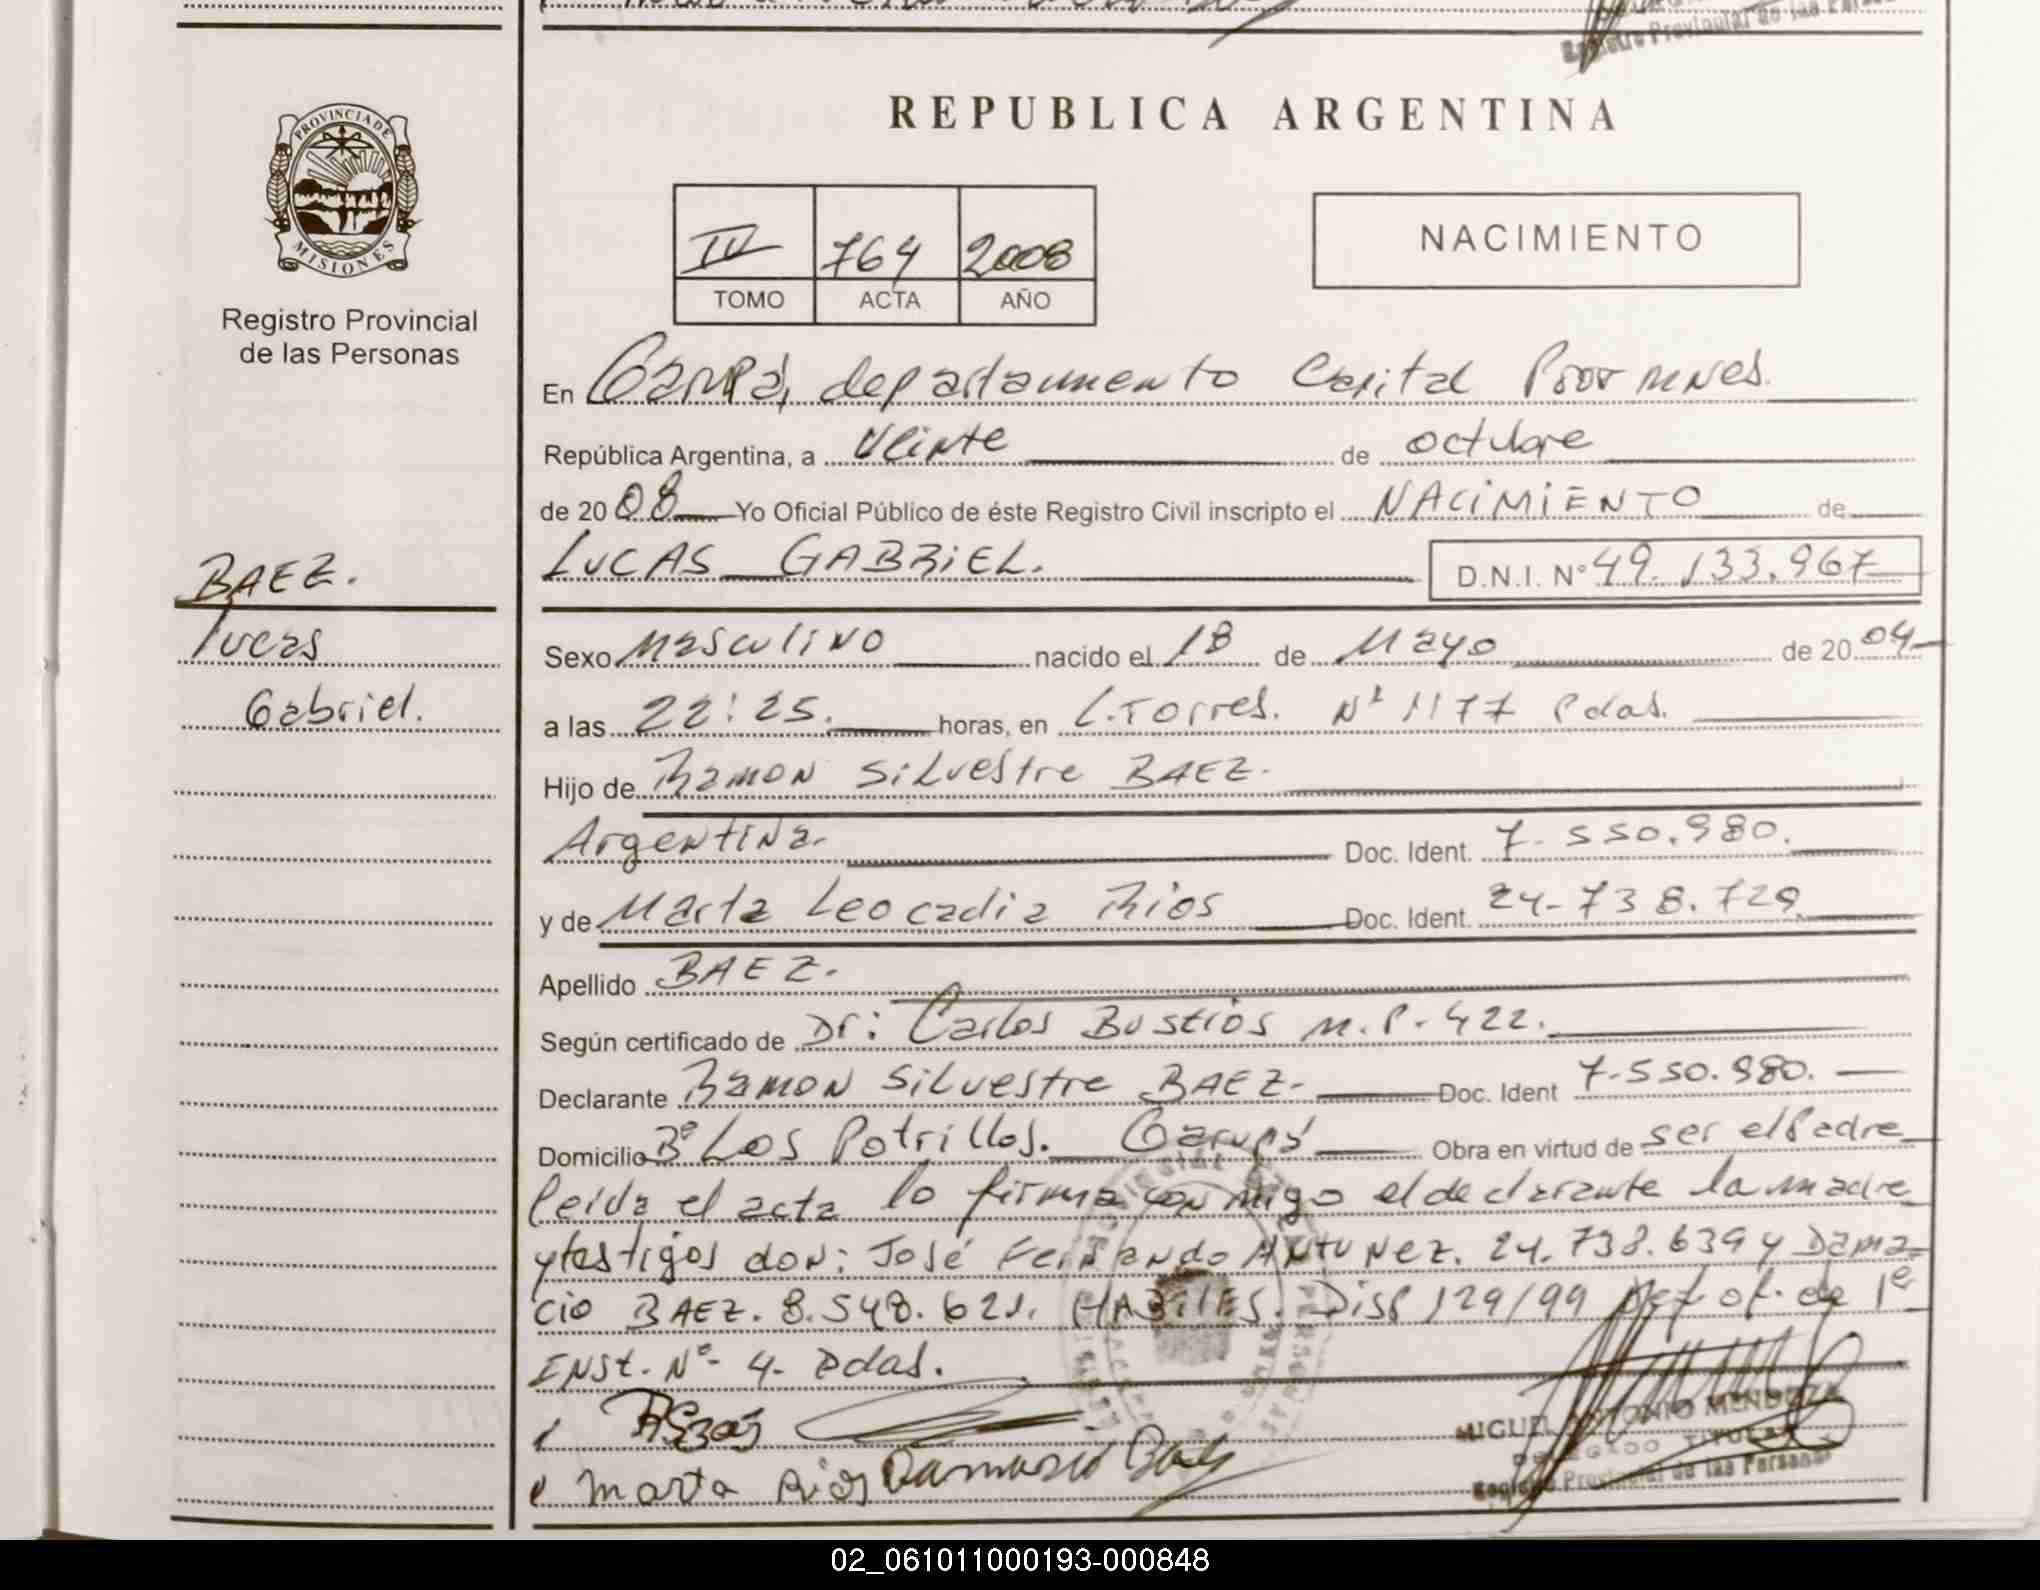 Registro Provincial de las Personas
REPUBLICA ARGENTINA
PROVINCIA DE
MISIONES
Registro Provincial
de las Personas
IV 764 2008
TOMO ACTA AÑO
NACIMIENTO
En Garupá, departamento Capital Prov mnes.
República Argentina, a veinte de octubre
de 2008 Yo Oficial Público de éste Registro Civil inscripto el NACIMIENTO de
BAEZ.
LUCAS GABRIEL. D.N.I. Nº 49.133.967
Lucas
Sexo Masculino nacido el 18 de Mayo de 2004
Gabriel.
a las 22:25. horas, en L. Torres. Nº 1177 Pdas.
Hijo de Ramon Silvestre BAEZ.
Argentina. Doc. Ident. 7-550.980.
y de Marta Leocadia Rios Doc. Ident. 24-738.729
Apellido BAEZ.
Según certificado de Dr: Carlos Bustios M.P-422.
Declarante Ramon Silvestre BAEZ- Doc. Ident 7-550.980.
Domicilio Bº Los Potrillos. Garupá Obra en virtud de ser el Padre
leída el acta lo firma con migo el declarante la madre
y testigos don: José Fernando ANTUNEZ. 24.738.639 y Dama-
cio BAEZ. 8.548.621. HABILES. Disp 129/99 Def. of. de 1ª
INST. Nº- 4- Pdas.
Marta Rios Damacio Baez
MIGUEL ANTONIO MENDOZA
DELEGADO TITULAR
Registro Provincial de las Personas
02_061011000193-000848